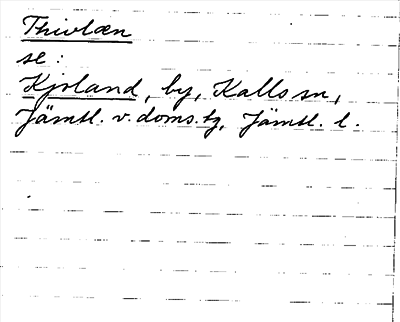 Thivlæn
se:
Kjoland, by, Kalls sn,
Jämtl. v. doms. tg, Jämtl. l.